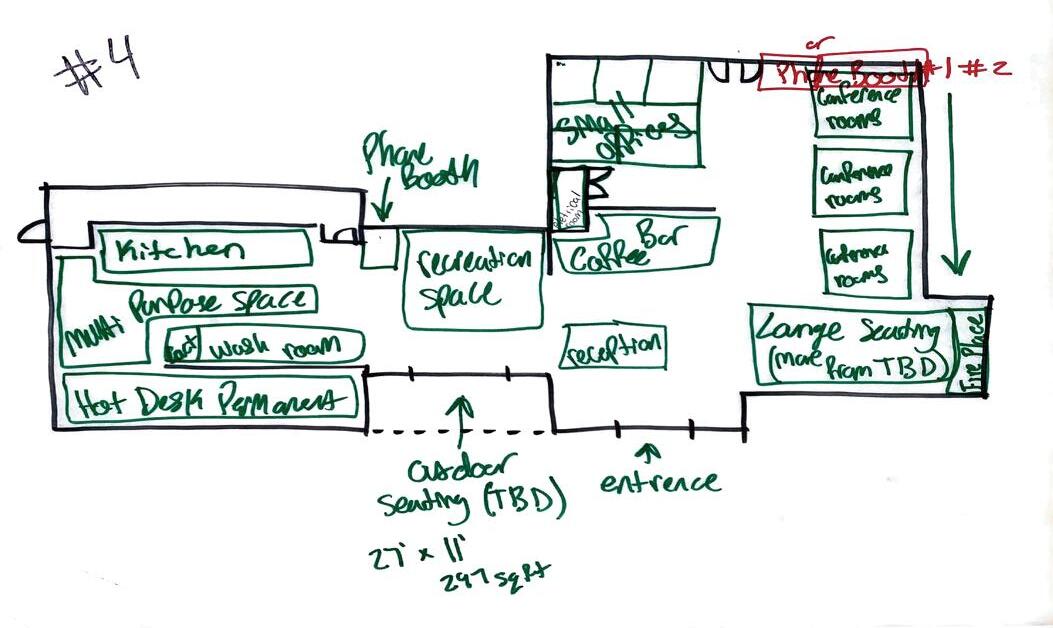 #4
or
Phone Booth #1 #2
Conference
rooms
Small
offices
Phone
Booth
Conference
rooms
eletrical
room
Kitchen
recreation
space
Bar
Coffee
Conference
rooms
Multi
Purpose space
Wash room
reception
Large Seating
(move from TBD)
Fire Place
Hot Desk Permanent
outdoor
Seating (TBD)
entrence
27' x 11'
297 sqft